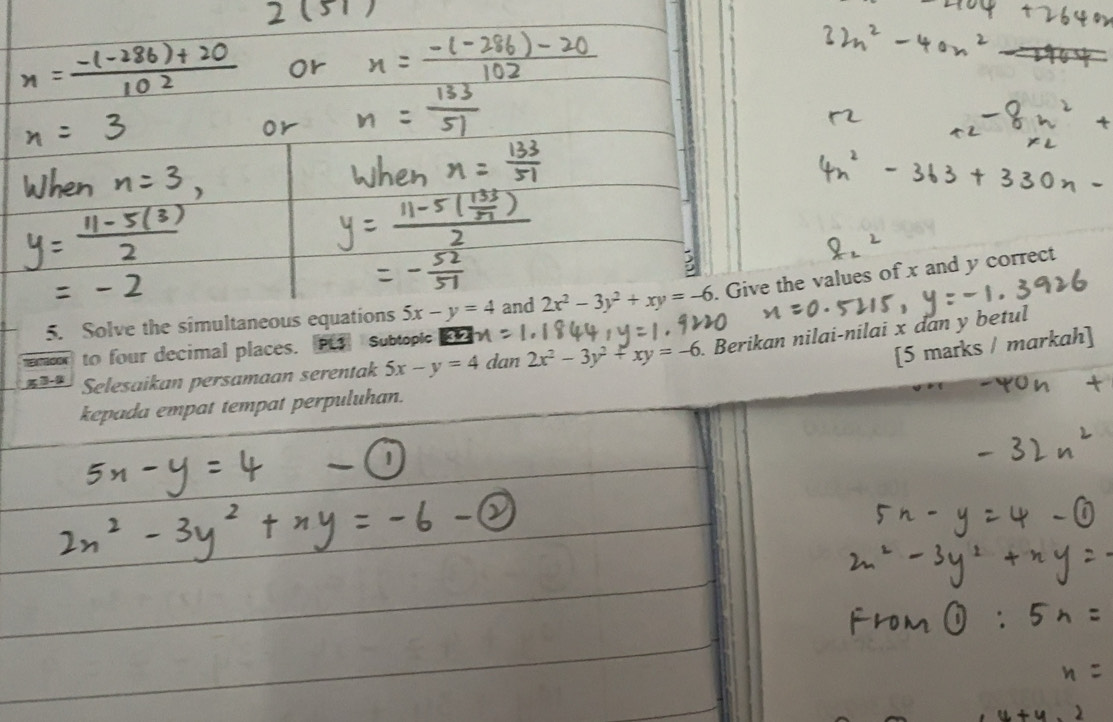 2(51)
n = -(-286)+20 / 102 or n = -(-286)-20 / 102
n = 3 or n = 133/51
When n=3, When n = 133/51
y = 11-5(3) / 2 y = 11-5(133/51) / 2
= -2 = -52/51
5. Solve the simultaneous equations 5x − y = 4 and 2x² − 3y² + xy = −6. Give the values of x and y correct
to four decimal places. PL3 Subtopic 3.2 n=1.1844, y=1.9220 n=0.5215, y=-1.3926
Selesaikan persamaan serentak 5x − y = 4 dan 2x² − 3y² + xy = −6. Berikan nilai-nilai x dan y betul
kepada empat tempat perpuluhan. [5 marks / markah]
5n - y = 4 - ①
2n² - 3y² + ny = -6 - ②
+2640n
32n² - 40n²
÷2 -8n² +
4n² - 363 + 330n -
8n²
-40n +
- 32n²
5n - y = 4 - ①
2n² - 3y² + ny = -
From ① : 5n =
n =